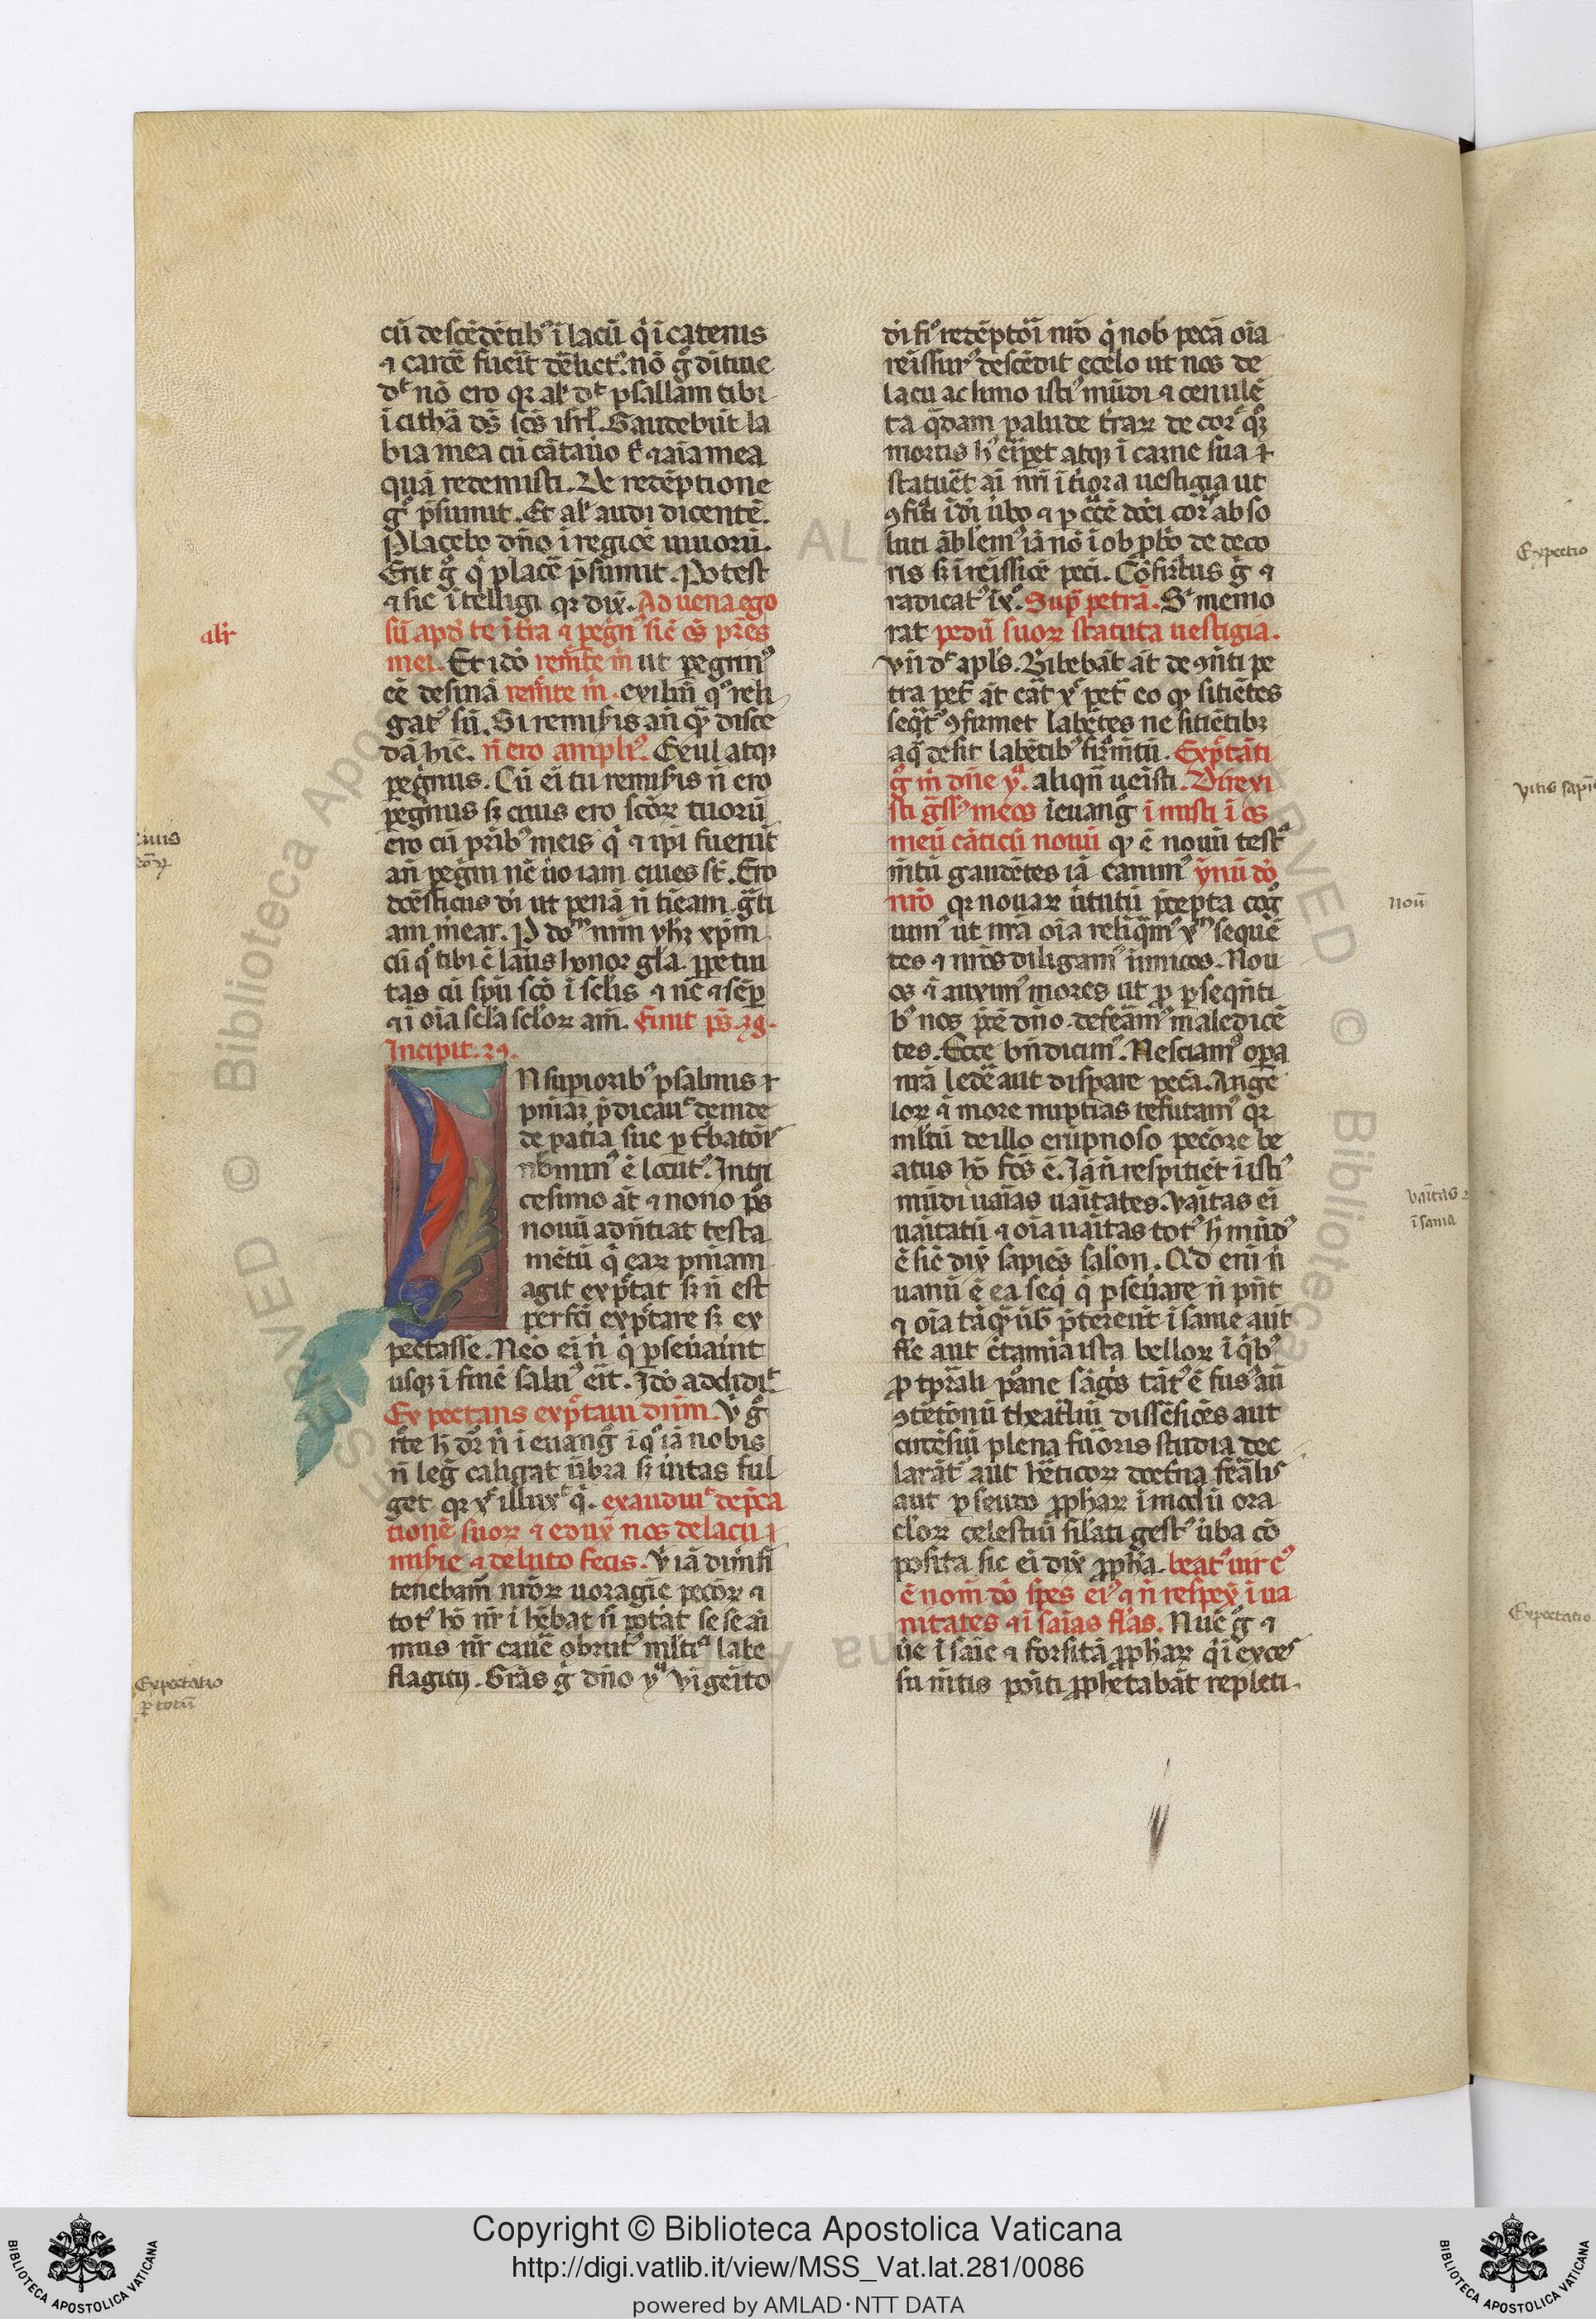 cū descēdētibꝰ ī lacū q̇ ī catenis
⁊ carcē fueīt dēlict̉. nō g̊ dītiue
psallam tibi
ī cithā dš sc̄s isrl̄. Gaudebūt la
bia mea cū cātauo t̄ ⁊ aīa mea
quā redemisti. De redēptione
g̊ p̄sumit. Et al̓ audi dicentē.
Placebo dn̄o ī regiōē uiuorū.
Erit g̊ q̇ placē p̄sumit. Potest
⁊ sic ītelligi qꝛ dix̄. Aduena ego
sū apd̓ te ī t̄ra ⁊ pegn̄ꝰ sic̄ oš pr̄es
mei. Et idō remīte m̄ ut pegrinꝰ
eē desinā remīte m̄. exiliū qͦ reli
gatꝰ sū. Si remiseris an̄ qꝫ disce
dā hīc. n̄ ero ampliꝰ. Exul atqꝫ
pegrinus. Cū ei tu remiseris n̄ ero
pegrinus sꝫ ciuis ero sc̄oꝝ tuorū
ero cū p̄ribꝰ meis q̇ ⁊ ip̄i fuerūt
an̄ pegini nc̄ ūo iam ciues st̄. Ero
domēsticus dī ut penā n̄ tīeam. gr̄ti
am mear. P do᷑ nrm̄ yhꝫ xp̄m
cū qͦ tibi ē laus honor gl̄a. ppetui
tas cū sp̄u sc̄o ī sc̄lis ⁊ nc̄ ⁊ semp̄
⁊ ī oīa sc̄la sc̄loꝝ am̄. Finit pš. 38.
Incipit. 39.
IN supioribꝰ psalmis ⁊
pniaꝝ p̄dicauit̄ deinde
de patīa sue
nominꝰ ē locutꝰ. In tri
cesimo at̄ ⁊ nono pš
nouū adn̄tiat testa
mētū q̇ eaꝝ pniam
agit exp̄tat sꝫ n̄ est
perfc̄i exp̄tare sꝫ ex
pectasse. Neō ei n̄ q̇ pseuaīnt
usqꝫ ī finē saluꝰ eīt. Idō addidit̄
Expectans exp̄taui dn̄m. V̄ g̊
rc̄te h̄ dr̄ n̄ ī euang̊ ī qͦ iā nobis
n̄ leg̊ caligat ūbra sꝫ ūitas ful
get qꝛ xͥ illux̄ q̇. exaudiuit̄ dep̄ca
tionē suoꝝ ⁊ edux̄ nos de lacu
miserie ⁊ de luto fecis. V̄ iā dīmsi
tenebam̄ nr̄oꝝ uoragīe pc̄coꝝ ⁊
totꝰ hō nr̄ ī hēbat n̄ potāt se se ai
mus nr̄ cauē obrutꝰ mltͣ labe
flagitij. Gras g̊ dn̄o
di fiꝰ redēptōi nr̄o q̇ nob̄ pc̄cā oīa
reīssurꝰ descēdit e celo ut nos de
lacu ac limo istiꝰ mūdi ⁊ cenulē
ta q̄dam palude t̄raꝝ de corꝑꝰ
mortis hꝰ eīpet atqꝫ ī carne sua
statuēt ai nr̄i īt̄iora uestigia ut
luti
ris sꝫ ī reīssiōē pc̄ci. Cōfirtus g̊ ⁊
radicatꝰ ī xͦ. Sup̄ petrā. Sͥ memo
rat pedū suoꝝ statuta uestigia.
vn̄ dt̄ apl̄s. Bibebāt at̄ de ꝯn̄ti pe
tra pet̄ at̄ eāt xͥ pet̄ eo qꝫ sitiētes
seq̄tꝰ ꝯfirmet labētes ne sitiētibꝫ
aq̄ desit labētibꝰ firmtū. Exp̄tāti
g̊ m̄ dn̄e yͣ. aliqn̄ ueīsti. Direxi
sti g̊ssꝰ meos ī euang̊ īmisti ī os
meū cāticū nouū qꝫ ē nouū testͣ
m̄tū gaudētes iā canimꝰ ȳnū dō
nr̄o qꝛ nouaꝝ ūtutū p̄cepta cog̊
uimꝰ ut nr̄a oīa reliq̄mꝰ xͫ sequē
tes ⁊ nr̄os diligamꝰ inimicos. Nou
os ⁊ auximꝰ mores ut p pseqn̄ti
bꝰ nos p̄ce dn̄o. defeāmꝰ maledicē
tes. Ecce bn̄dicimꝰ. Nesciamꝰ opa
nr̄a ledē aut dispare pc̄cā. Ange
loꝝ ⁊ more nuptias refutamꝰ qꝛ
mltū de illo erūpnoso pecōre be
atus hō fc̄s ē. Iā n̄ respitiet istiꝰ
mūdi uaīas uaītates. Vaītas ei
uaītatū ⁊ oīa uaītas totꝰ h̄ mūdꝰ
ē sic̄ dix̄ sapiēs salon. Qd enī n̄
uanū ē ea seq̇ q̇ pseuare n̄ pn̄t
⁊ oīa tāqꝫ ūb̄ p̄tereūt īsanie aūt
flē aut c̄tamīa ista belloꝝ ī qͥbꝰ
ꝯtētōnū theat̄liū dissēsiōēs aut
circēsiū plena furoris studia dec
larātꝰ aut hēticoꝝ doctna feālis
aut pseudo pphaꝝ ī modū ora
cloꝝ celestiū sil̓ati gestꝰ ūba cō
posita sic̄ ei dix̄ ppha. beatꝰ uir cꝰ
ē nom̄ dō spes eiꝰ ⁊ n̄ respex̄ ī ua
nitates ⁊ ī saīas fl̄as. Nūc g̊ ⁊
ūe īsaīe ⁊ forsitā pphaꝝ q̇ ī exces
su m̄tis poīti pphetabāt repleti.
alr̄
Expectatio
p totū
Noū
vaītas
īsania
Expectio
Expectatio
Copyright © Biblioteca Apostolica Vaticana
http://digi.vatlib.it/view/MSS_Vat.lat.281/0086
powered by AMLAD·NTT DATA
BIBLIOTECA APOSTOLICA VATICANA
BIBLIOTECA APOSTOLICA VATICANA